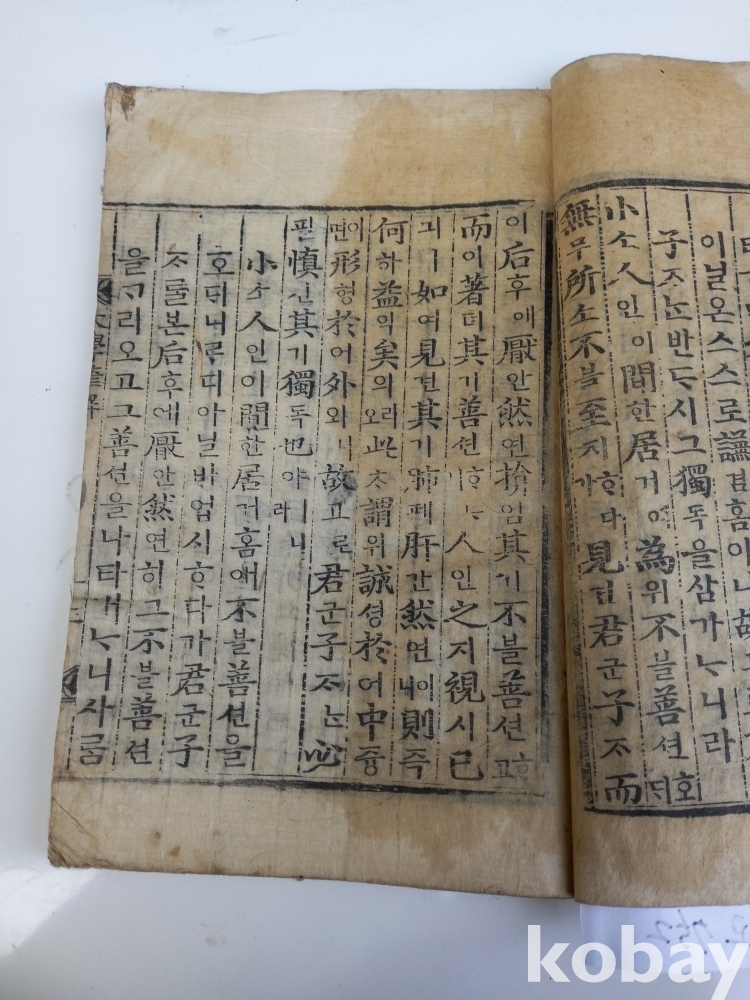 이닐온스스로謙겸홈이니故
子ᄌᆞᄂᆞᆫ반ᄃᆞ시그獨독을삼가ᄂᆞ니라
小소人인이閒한居거에爲위不블善션호ᄃᆡ
無무所소不블至지ᄒᆞ다가見견君군子ᄌᆞ而
이后후에厭안然연揜엄其기不블善션ᄒᆞ고
而이著뎌其기善션ᄒᆞᄂᆞ니人인之지視시己
긔ㅣ如여見견其기肺폐肝간然연이니則즉
何하益익矣의리오此ᄎᆞ謂위誠셩於어中즁
이면形형於어外외니故고로君군子ᄌᆞᄂᆞᆫ必
필愼신其기獨독也야ㅣ니라
小소人인이閒한居거홈애不블善션을
호ᄃᆡ니르디아닐바업시ᄒᆞ다가君군子
ᄌᆞᄅᆞᆯ본后후에厭안然연히그不블善션
을ᄀᆞ리오고그善션을나타내ᄂᆞ니사ᄅᆞᆷ
大學諺解
三
kobay